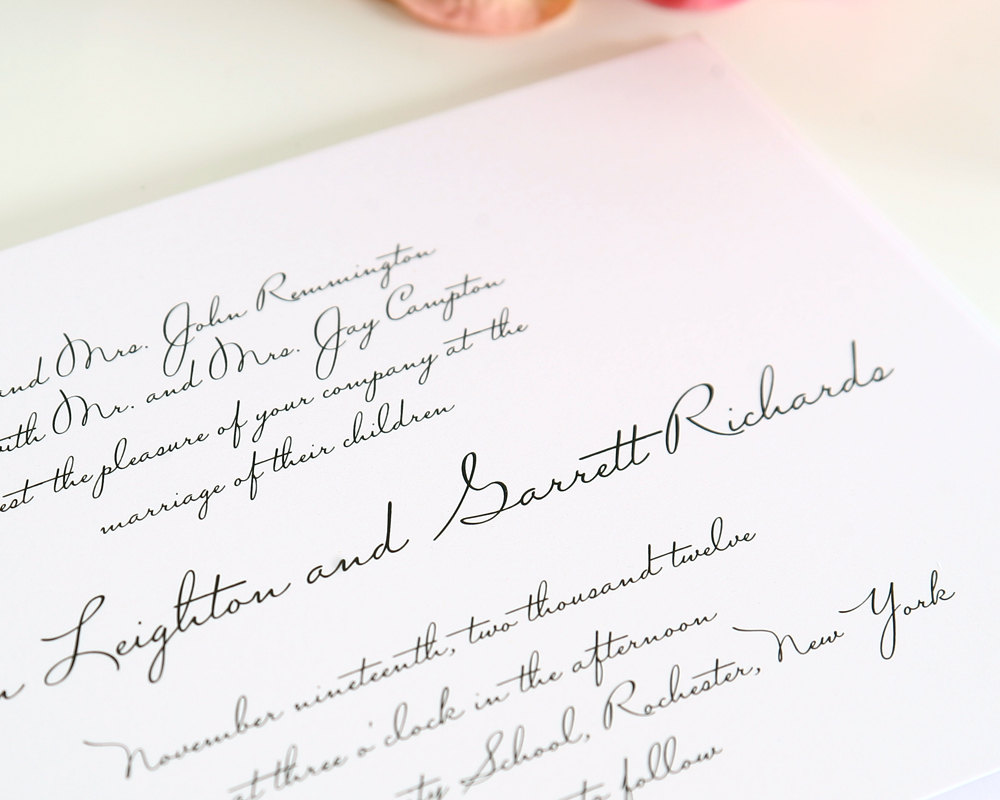 and Mrs. John Remmington
with Mr. and Mrs. Jay Campton
est the pleasure of your company at the
marriage of their children
n Leighton and Garrett Richards
November nineteenth, two thousand twelve
at three o'clock in the afternoon
ty School, Rochester, New York
to follow